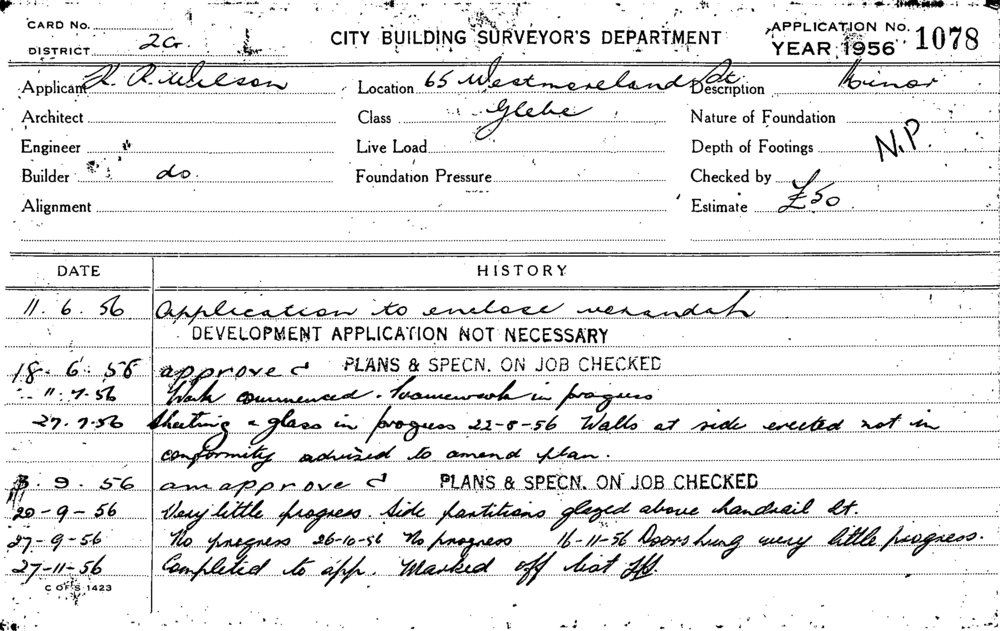 CARD NO.
DISTRICT 2G.
CITY BUILDING SURVEYOR'S DEPARTMENT
APPLICATION NO. 1078
YEAR 1956
Applicant K. R. Wilson Location 65 Westmoreland St Description Minor
Architect Class Glebe Nature of Foundation
Engineer Live Load Depth of Footings N.P.
Builder do. Foundation Pressure Checked by
Alignment Estimate £50
DATE HISTORY
11. 6. 56 Application to enclose verandah
DEVELOPMENT APPLICATION NOT NECESSARY
18. 6. 56 approved PLANS & SPECN. ON JOB CHECKED
11.7.56 Work commenced. Framework in progress
27.7.56 Sheeting & glass in progress 22-8-56 Walls at side erected not in
conformity advised to amend plan.
3. 9. 56 am approved PLANS & SPECN. ON JOB CHECKED
20-9-56 Very little progress. Side partitions glazed above handrail ht.
27-9-56 No progress 26-10-56 No progress 16-11-56 Doors hung very little progress.
27-11-56 Completed to app. Marked off list
C OF S 1423